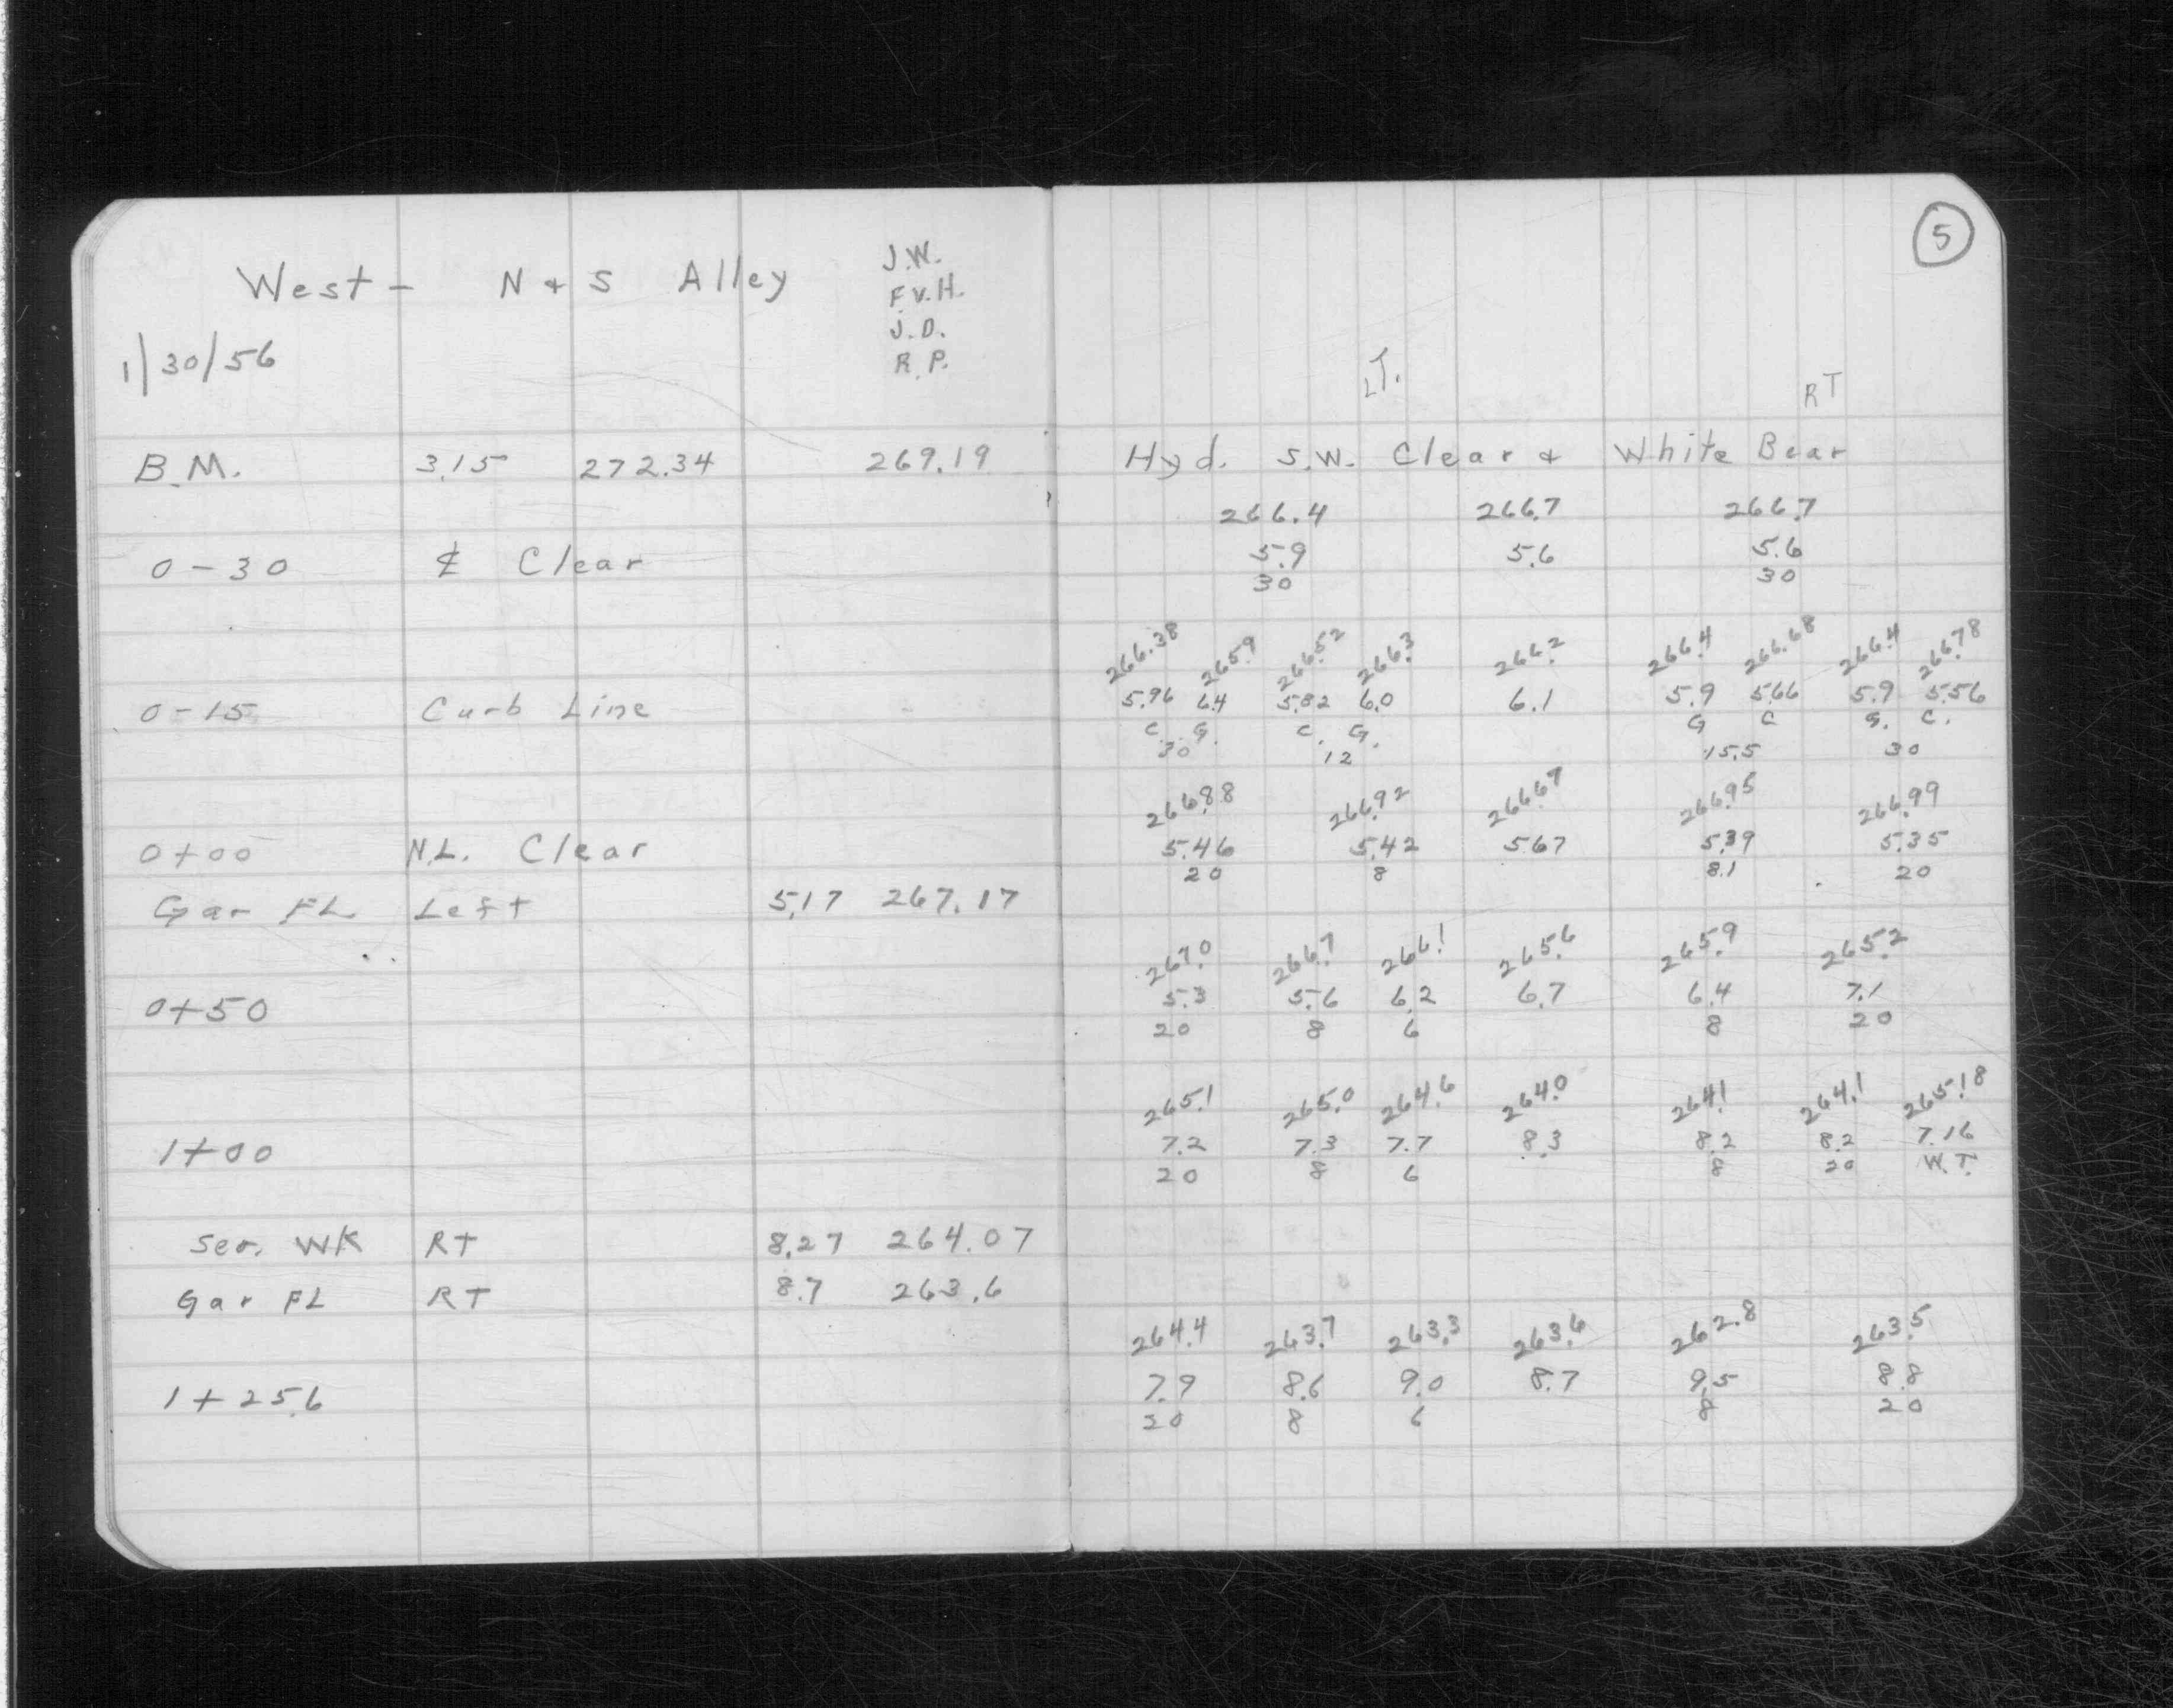 West - N + S Alley
J.W.
F.V.H.
J.D.
R.P.
1/30/56
B.M. 3.15 272.34 269.19
0-30 ℄ Clear
0-15 Curb Line
0+00 N.L. Clear
Gar FL Left 5.17 267.17
0+50
1+00
Ser. WK RT 8.27 264.07
Gar FL RT 8.7 263.6
1+25.6
5
LT.
RT
Hyd. S.W. Clear + White Bear
266.4 266.7 266.7
5.9 5.6 5.6
30 30
266.38 265.9 266.52 266.3 266.2 266.4 266.68 266.4 266.78
5.96 6.4 5.82 6.0 6.1 5.9 5.66 5.9 5.56
C. G. C. G. G C G. C.
30 12 15.5 30
266.88 266.92 266.67 266.95 266.99
5.46 5.42 5.67 5.39 5.35
20 8 8.1 20
267.0 266.7 266.1 265.6 265.9 265.2
5.3 5.6 6.2 6.7 6.4 7.1
20 8 6 8 20
265.1 265.0 264.6 264.0 264.1 264.1 265.18
7.2 7.3 7.7 8.3 8.2 8.2 7.16
20 8 6 8 20 W.T.
264.4 263.7 263.3 263.6 262.8 263.5
7.9 8.6 9.0 8.7 9.5 8.8
20 8 6 8 20